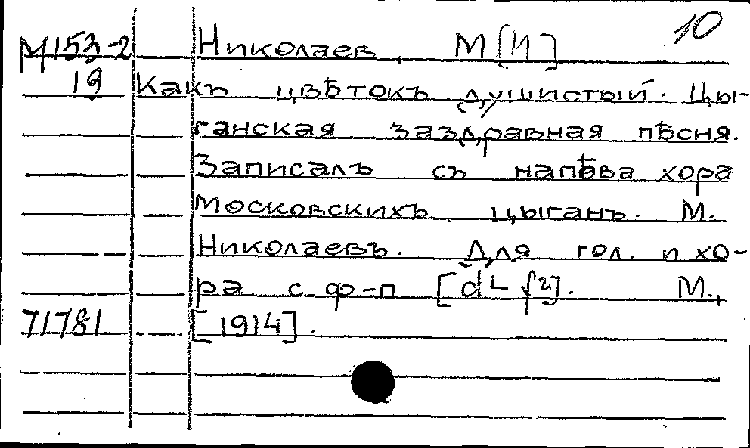 10
М153-2 Николаев, М[И]
19 Какъ цвѣтокъ душистый. Цы-
ганская заздравная пѣсня.
Записалъ съ напѣва хора
московскихъ цыганъ. М.
Николаевъ. Для гол. и хо-
ра с ф-п [d¹- f²]. М.,
71781 [1914].